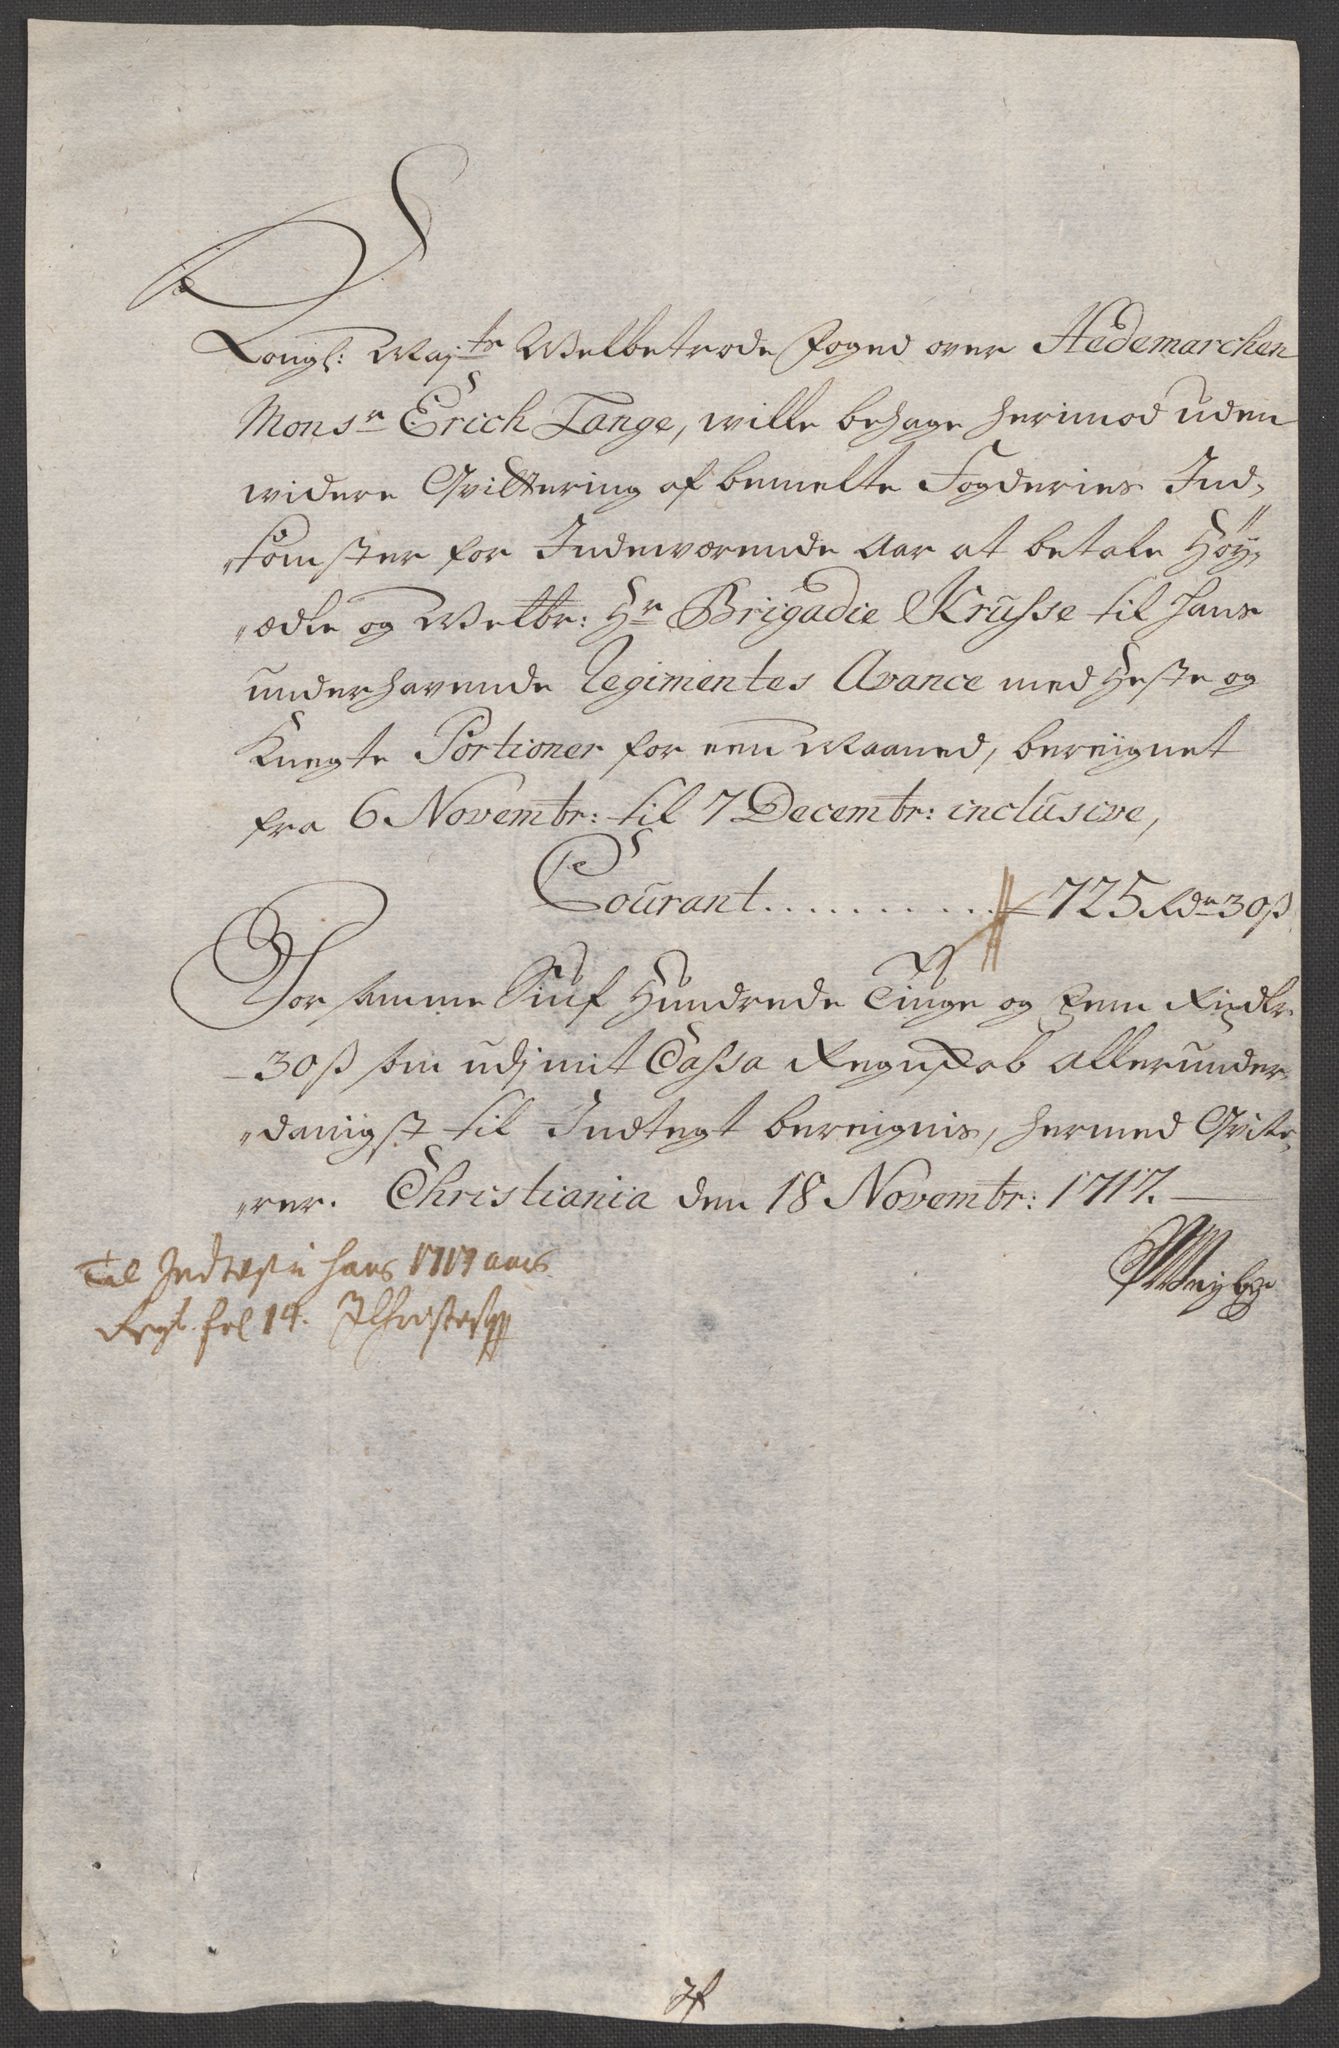 Kongl: Maj:ts Welbetrode foged over Hedemarchen
Monsr Erich Lange, wille behage herimod uden
widere Qvittering af bemelte Fogderies Ind-
"komster for Indeværende Aar at betale Høy-
"ædle og Welbr: Hr Brigadie Krusse til hans
underhavende Regimentes Avance med Heste og
Knegte Portioner for een Maaned, bereignet
fra 6 Novembr: til 7 Decembr: inclusive,
Courant.......... 725 Rdr 30 ß
For samme Siuf Hundrede Tiuge og fem Rixdlr
30 ß som udj mit Cassa Regnskab allerunder-
"danigst til Indtegt bereignis, hermed Qvite-
"rer. Christiania den 18 Novembr: 1717.
Til Indtægt i hans 1717 aars
Regsk. fol 14.